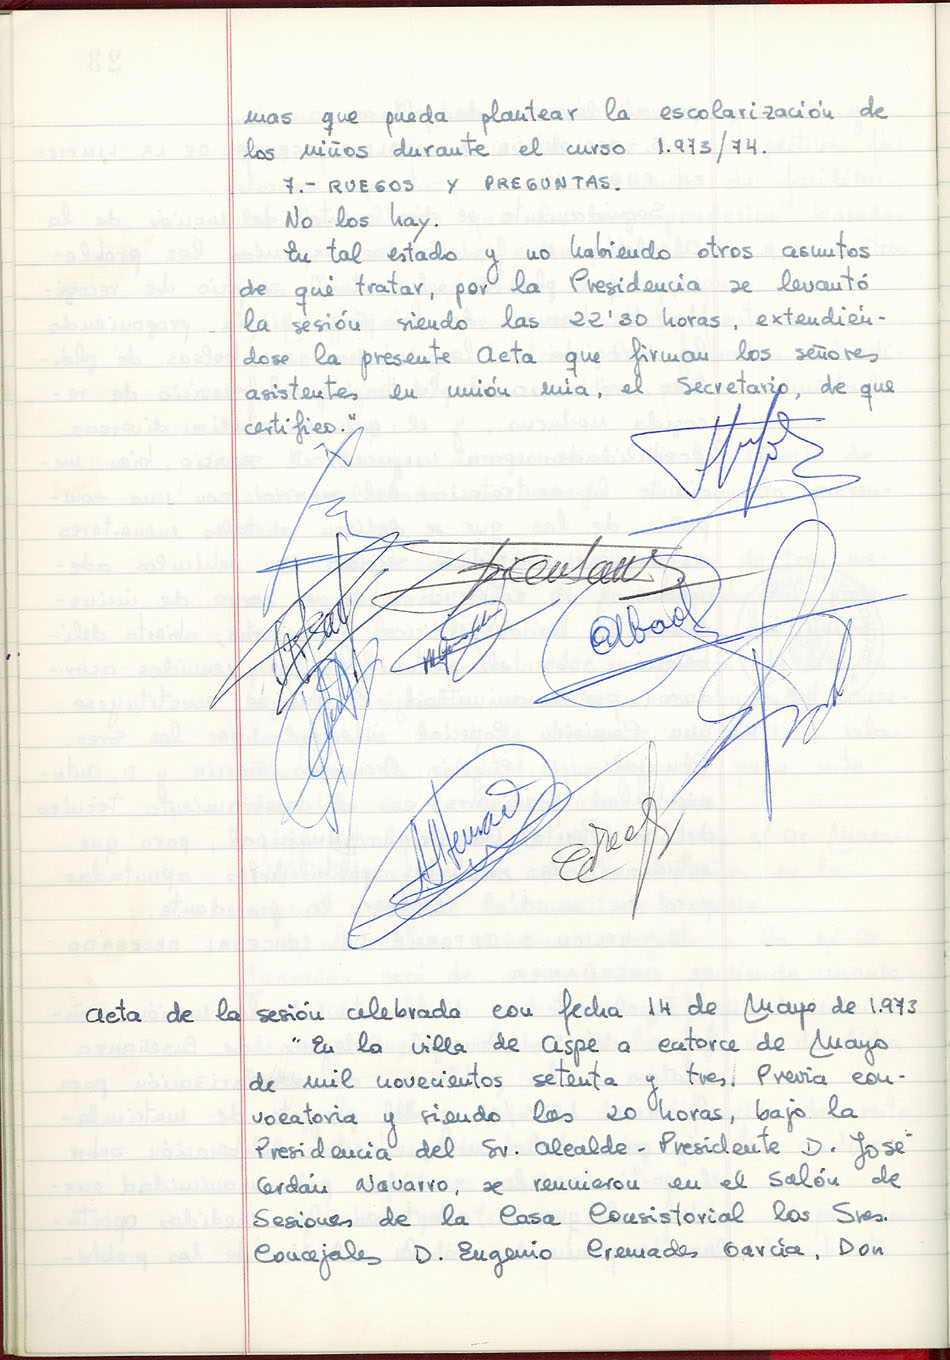 mas que pueda plantear la escolarización de
los niños durante el curso 1.973/74.
7.- RUEGOS Y PREGUNTAS.
No los hay.
En tal estado y no habiendo otros asuntos
de que tratar, por la Presidencia se levantó
la sesión siendo las 22'30 horas, extendién-
dose la presente Acta que firman los señores
asistentes en unión mía, el Secretario, de que
certifico."
Albad
Acta de la sesión celebrada con fecha 14 de Mayo de 1.973
"En la villa de Aspe a catorce de Mayo
de mil novecientos setenta y tres. Previa con-
vocatoria y siendo las 20 horas, bajo la
Presidencia del Sr. Alcalde-Presidente D. José
Cerdán Navarro, se reunieron en el Salón de
Sesiones de la Casa Consistorial los Sres.
Concejales D. Eugenio Cremades García, Don